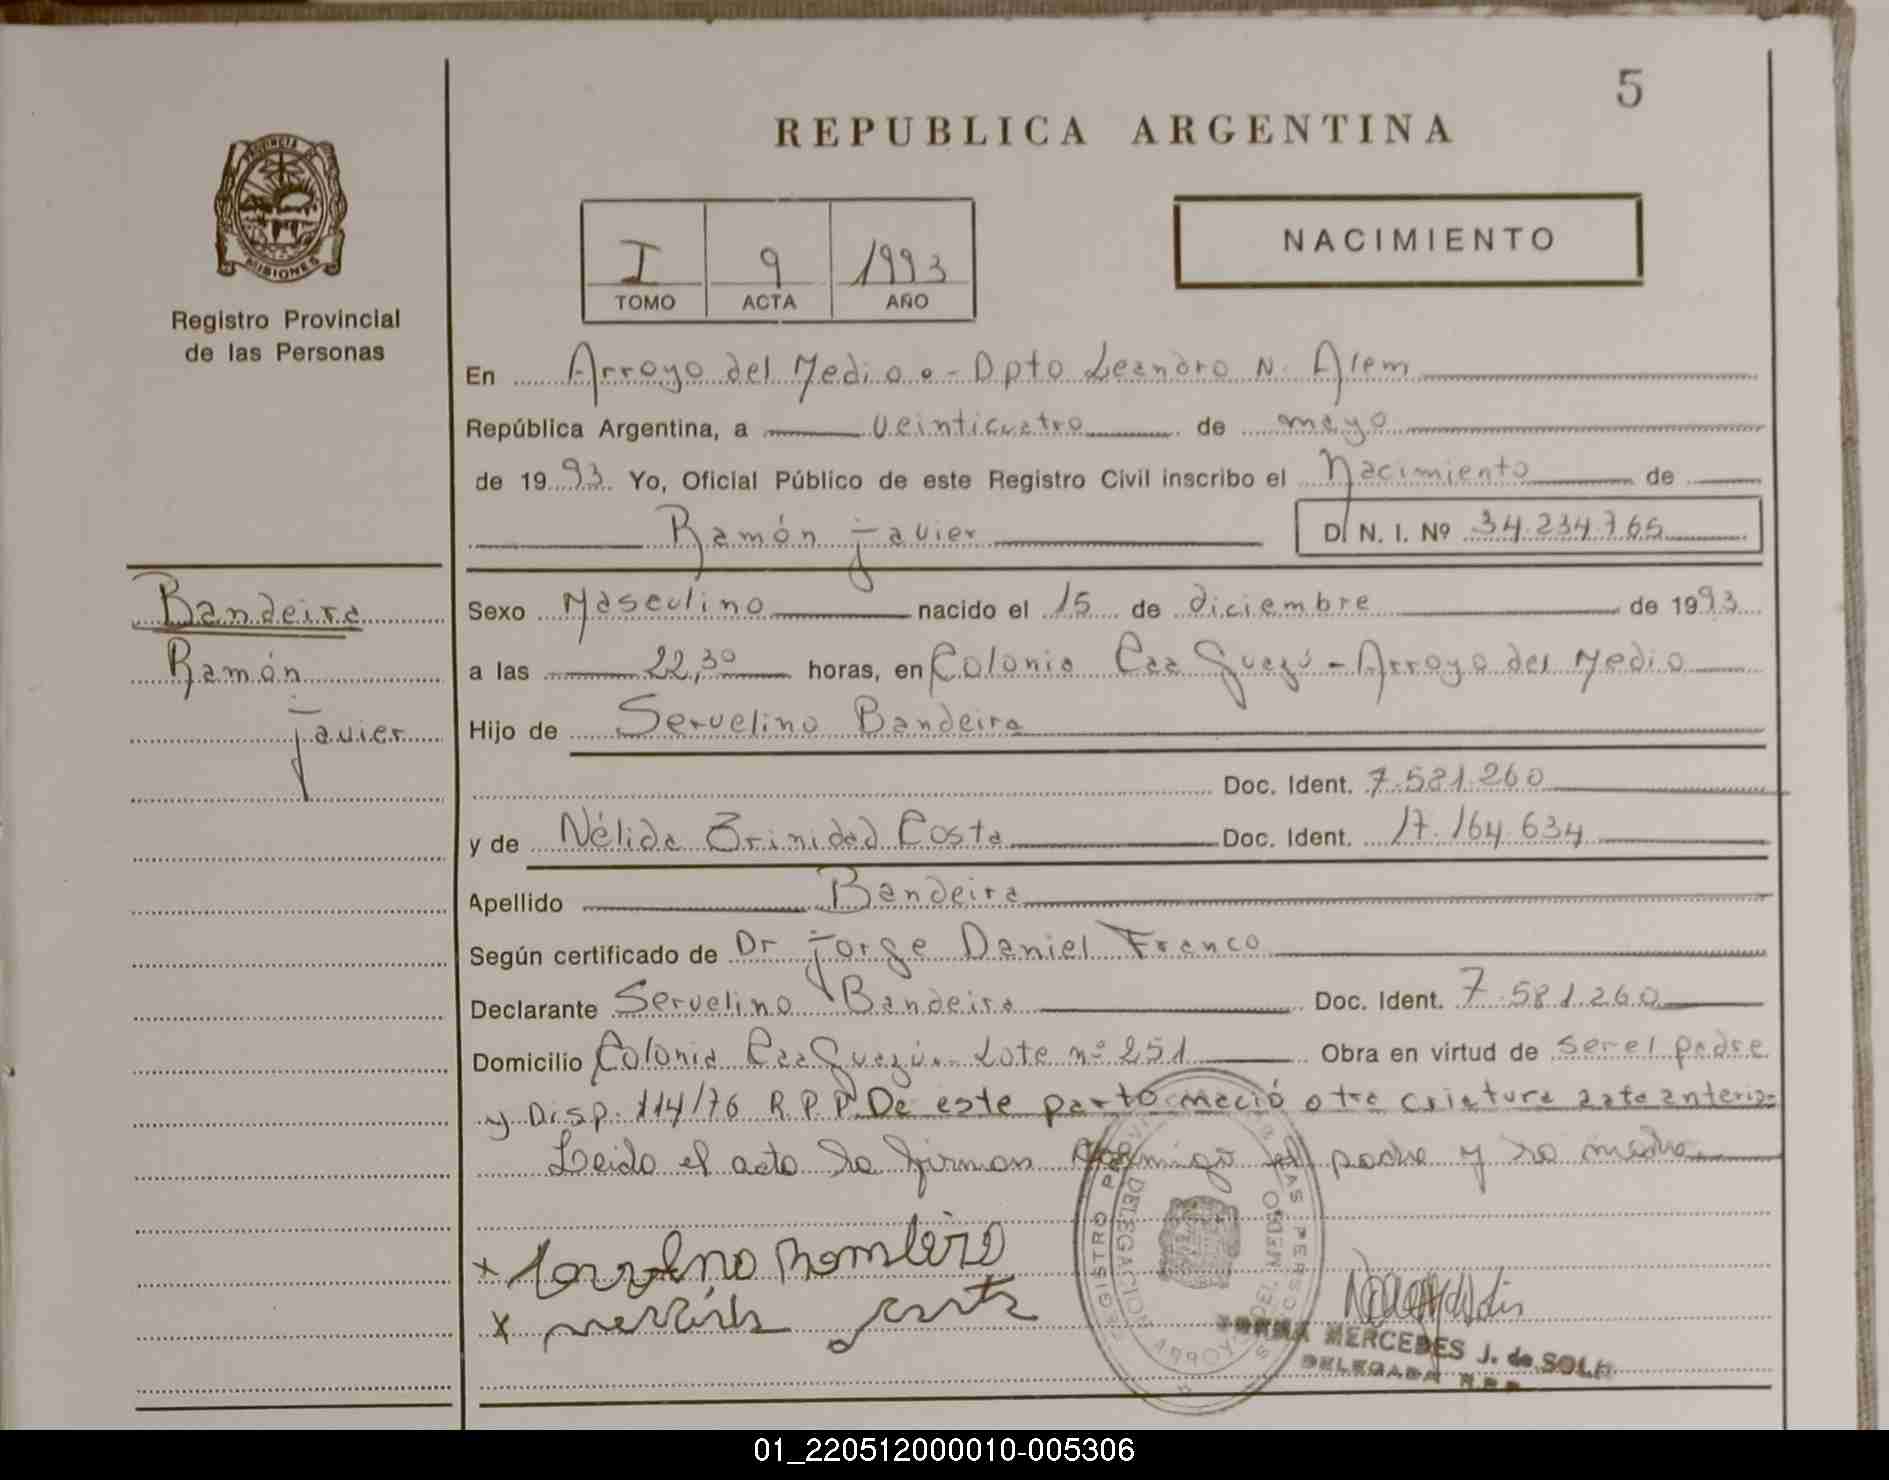 5
REPUBLICA ARGENTINA
PROVINCIA DE
MISIONES
Registro Provincial
de las Personas
I 9 1993
TOMO ACTA AÑO
NACIMIENTO
En Arroyo del Medio - Dpto Leandro N. Alem
República Argentina, a veinticuatro de mayo
de 1993. Yo, Oficial Público de este Registro Civil inscribo el Nacimiento de
Ramón Javier D. N. I. Nº 34.234.765
Bandeira
Ramón
Javier
Sexo Masculino nacido el 15 de diciembre de 1993
a las 22,30 horas, en Colonia Caa Guazú - Arroyo del Medio
Hijo de Servelino Bandeira
Doc. Ident. 7.581.260
y de Nélida Trinidad Costa Doc. Ident. 17.164.634
Apellido Bandeira
Según certificado de Dr Jorge Daniel Franco
Declarante Servelino Bandeira Doc. Ident. 7.581.260
Domicilio Colonia Caa Guazú - Lote nº 251 Obra en virtud de ser el padre
y Disp. 114/76 R.P.P. De este parto nació otra criatura acta anterior
Leido el acta la firman conmigo el padre y la madre
REGISTRO PROVINCIAL DE LAS PERSONAS
DELEGACION ARROYO DEL MEDIO
NORMA MERCEDES J. de SOLA
DELEGADA R.P.P.
01_220512000010-005306